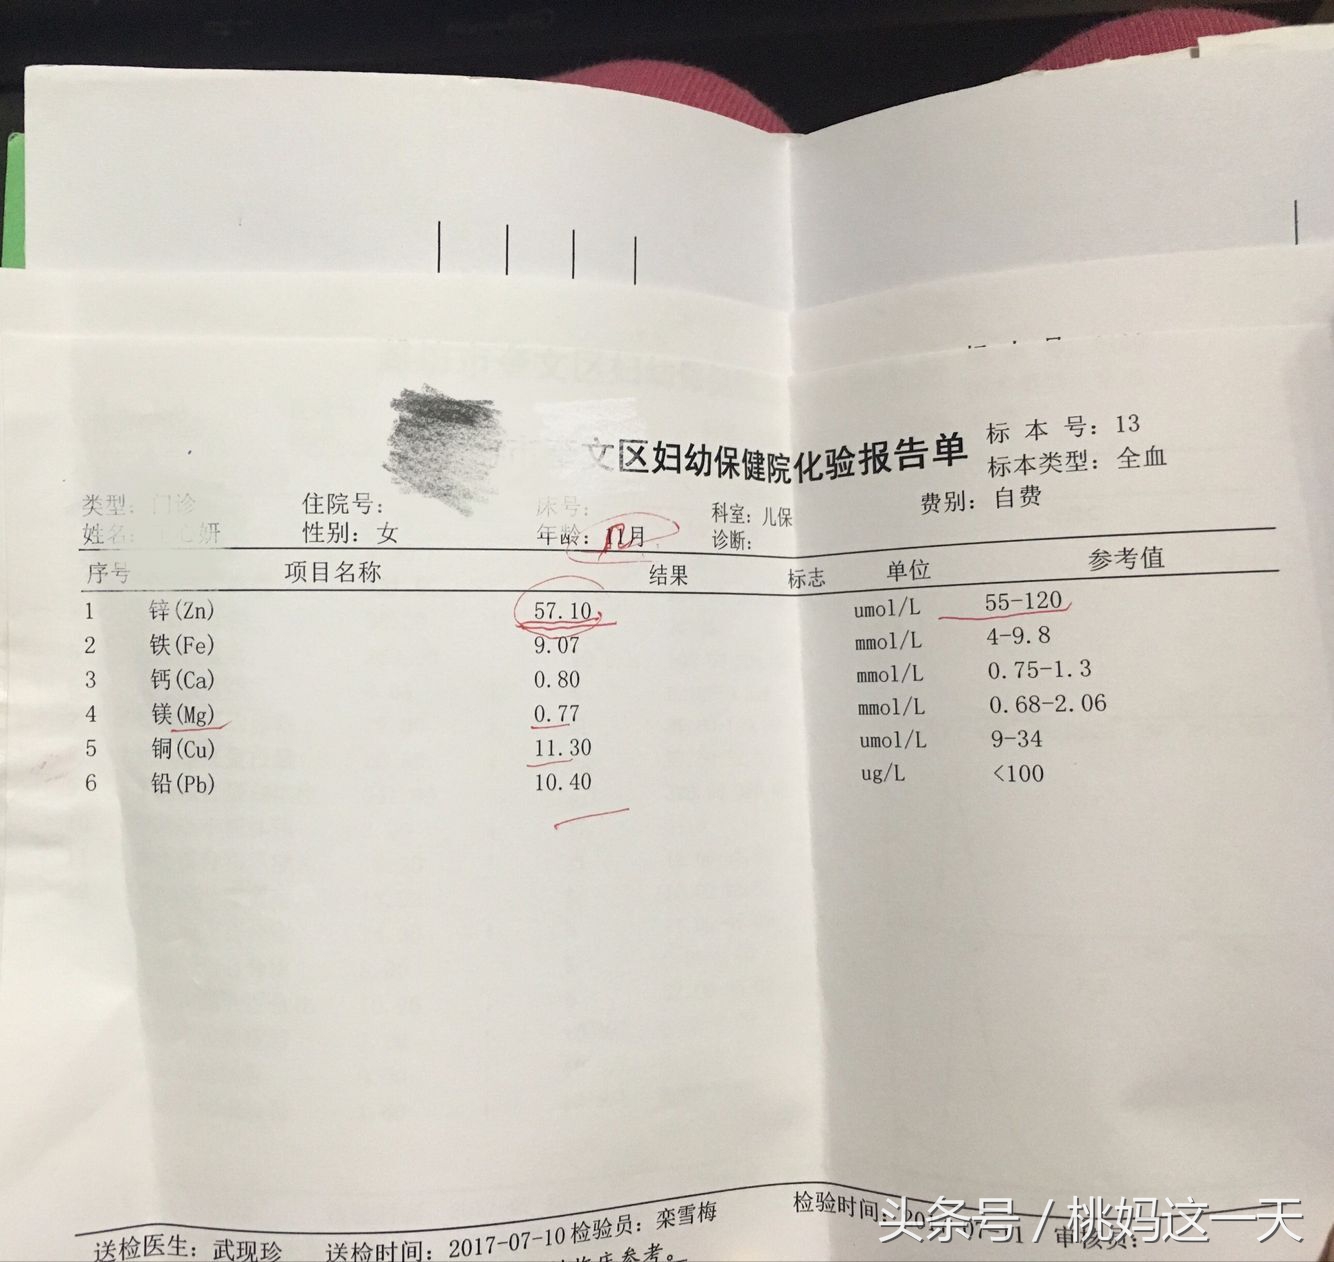 文区妇幼保健院化验报告单
标 本 号: 13
标本类型: 全血
类型: 门诊 住院号: 床号: 科室: 儿保 费别: 自费
姓名: 心妍 性别: 女 年龄: 11月 诊断:
序号 项目名称 结果 标志 单位 参考值
1 锌(Zn) 57.10 umol/L 55-120
2 铁(Fe) 9.07 mmol/L 4-9.8
3 钙(Ca) 0.80 mmol/L 0.75-1.3
4 镁(Mg) 0.77 mmol/L 0.68-2.06
5 铜(Cu) 11.30 umol/L 9-34
6 铅(Pb) 10.40 ug/L <100
送检医生: 武现珍 送检时间: 2017-07-10 检验员: 栾雪梅 检验时间: 审核员:
临床参考。
头条号 / 桃妈这一天